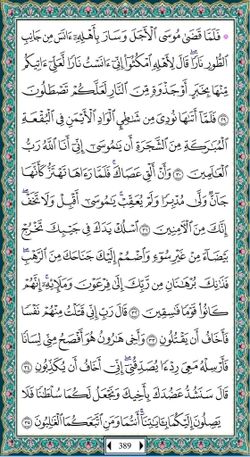 ۞ فَلَمَّا قَضَىٰ مُوسَى ٱلْأَجَلَ وَسَارَ بِأَهْلِهِۦٓ ءَانَسَ مِن جَانِبِ
ٱلطُّورِ نَارًا قَالَ لِأَهْلِهِ ٱمْكُثُوٓا۟ إِنِّىٓ ءَانَسْتُ نَارًا لَّعَلِّىٓ ءَاتِيكُم
مِّنْهَا بِخَبَرٍ أَوْ جَذْوَةٍ مِّنَ ٱلنَّارِ لَعَلَّكُمْ تَصْطَلُونَ
٢٩ فَلَمَّآ أَتَىٰهَا نُودِىَ مِن شَٰطِئِ ٱلْوَادِ ٱلْأَيْمَنِ فِى ٱلْبُقْعَةِ
ٱلْمُبَٰرَكَةِ مِنَ ٱلشَّجَرَةِ أَن يَٰمُوسَىٰٓ إِنِّىٓ أَنَا ٱللَّهُ رَبُّ
ٱلْعَٰلَمِينَ ٣٠ وَأَنْ أَلْقِ عَصَاكَ فَلَمَّا رَءَاهَا تَهْتَزُّ كَأَنَّهَا
جَآنٌّ وَلَّىٰ مُدْبِرًا وَلَمْ يُعَقِّبْ يَٰمُوسَىٰٓ أَقْبِلْ وَلَا تَخَفْ
إِنَّكَ مِنَ ٱلْءَامِنِينَ ٣١ ٱسْلُكْ يَدَكَ فِى جَيْبِكَ تَخْرُجْ
بَيْضَآءَ مِنْ غَيْرِ سُوٓءٍ وَٱضْمُمْ إِلَيْكَ جَنَاحَكَ مِنَ ٱلرَّهْبِ
فَذَٰنِكَ بُرْهَٰنَانِ مِن رَّبِّكَ إِلَىٰ فِرْعَوْنَ وَمَلَإِي۟هِۦٓ إِنَّهُمْ
كَانُوا۟ قَوْمًا فَٰسِقِينَ ٣٢ قَالَ رَبِّ إِنِّى قَتَلْتُ مِنْهُمْ نَفْسًا
فَأَخَافُ أَن يَقْتُلُونِ ٣٣ وَأَخِى هَٰرُونُ هُوَ أَفْصَحُ مِنِّى لِسَانًا
فَأَرْسِلْهُ مَعِىَ رِدْءًا يُصَدِّقُنِىٓ إِنِّىٓ أَخَافُ أَن يُكَذِّبُونِ ٣٤
قَالَ سَنَشُدُّ عَضُدَكَ بِأَخِيكَ وَنَجْعَلُ لَكُمَا سُلْطَٰنًا فَلَا
يَصِلُونَ إِلَيْكُمَا بِـَٔايَٰتِنَآ أَنتُمَا وَمَنِ ٱتَّبَعَكُمَا ٱلْغَٰلِبُونَ ٣٥
389